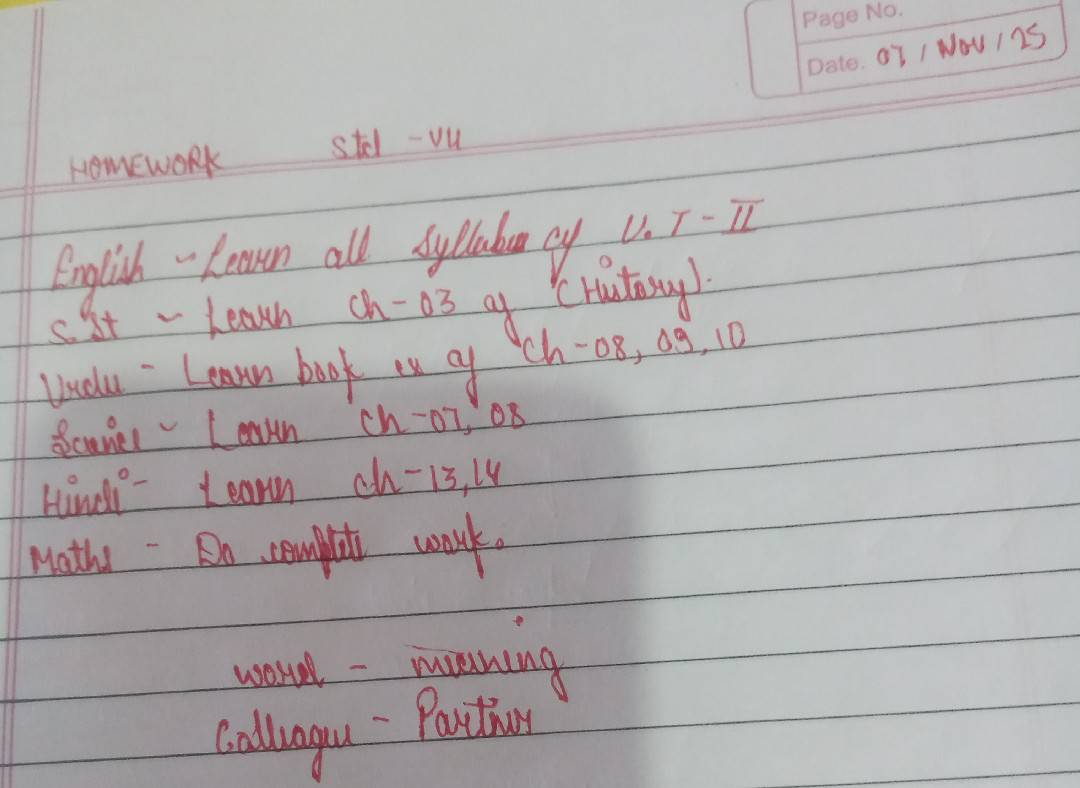 Page No.
Date. 07 / Nov / 25
HOMEWORK Std - VII
English - Learn all Syllabus of U.T - II
S.St - Learn Ch - 03 of (History).
Urdu - Learn book ex of Ch - 08, 09, 10
Science - Learn Ch - 07, 08
Hindi - Learn ch - 13, 14
Maths - Do complete work.
word - meaning
Colleague - Partner